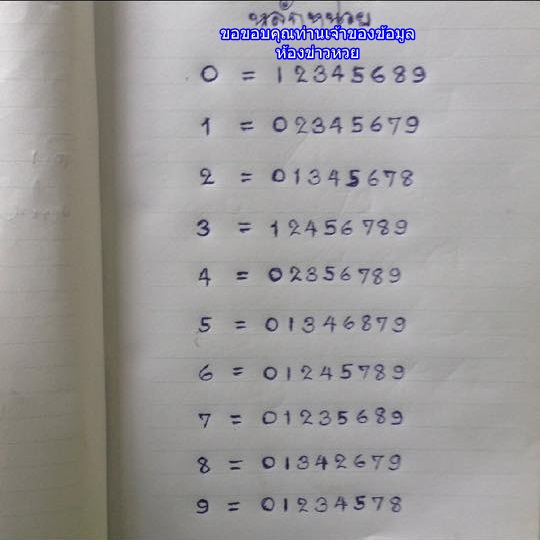 หลักหน่วย
ขอขอบคุณท่านเจ้าของข้อมูล
ห้องข่าวหวย
0 = 12345689
1 = 02345679
2 = 01345678
3 = 12456789
4 = 02356789
5 = 01346879
6 = 01245789
7 = 01235689
8 = 01342679
9 = 01234578